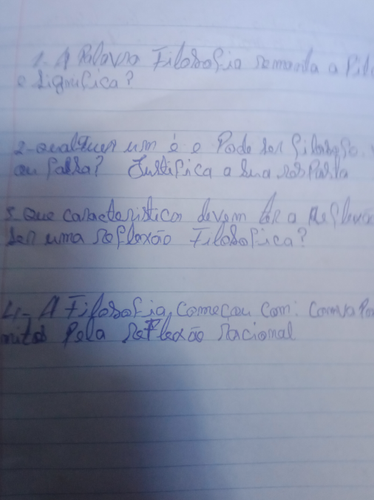 1. A Palavra Filosofia remonta a
e significa?
2-qualquer um é e Pode ser filosofo
ou falsa? Justifica a sua resposta
3. Que caracteristicas devem ter a Reflexão
ser uma reflexão Filosofica?
4- A Filosofia, começou com:
mitos Pela reflexão racional